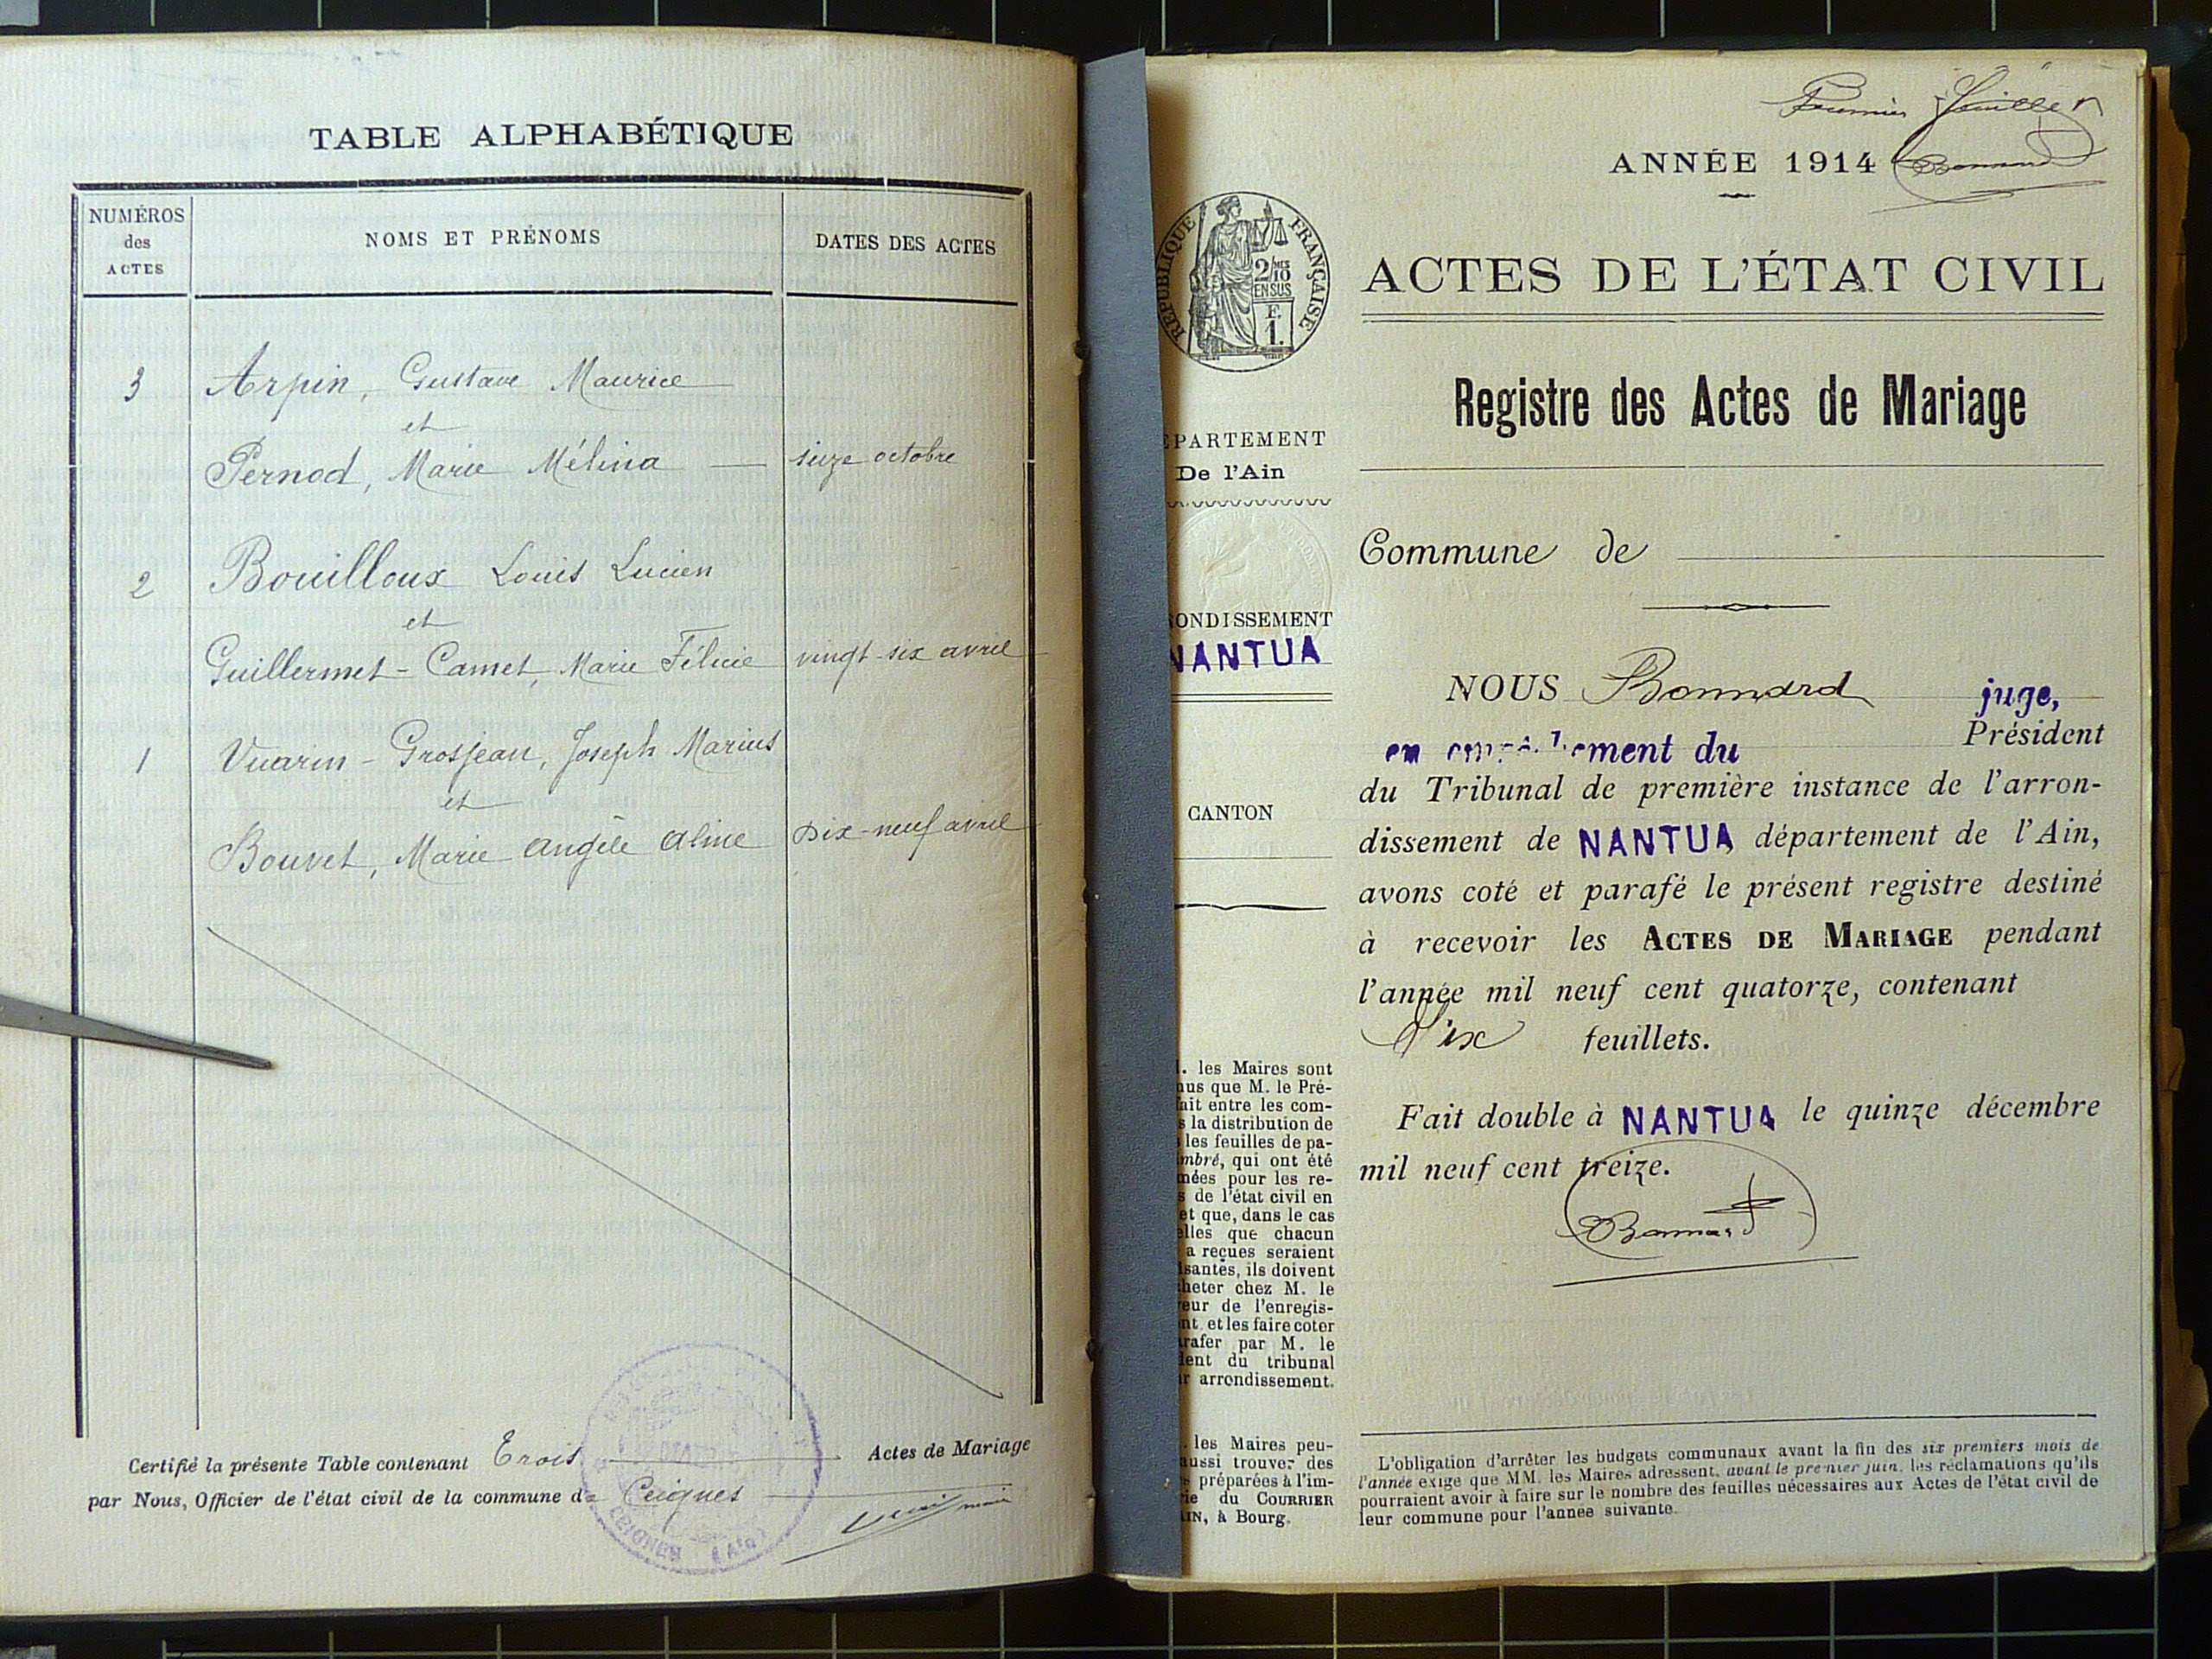 TABLE ALPHABÉTIQUE
NUMÉROS
des
ACTES
NOMS ET PRÉNOMS
DATES DES ACTES
3 Arpin, Gustave Maurice
et
Pernod, Marie Mélina — seize octobre
2 Bouilloux Louis Lucien
et
Guillermet-Camet, Marie Félicie vingt-six avril
1 Vuarin-Grosjean, Joseph Marius
et
Bouvet, Marie Angèle Aline Dix-neuf avril
Certifié la présente Table contenant Trois Actes de Mariage
par Nous, Officier de l'état civil de la commune de Ceignes
CEIGNES (Ain)
Premier feuillet
ANNÉE 1914
Bonnard
RÉPUBLIQUE FRANÇAISE
2/10 MES
EN SUS
F.
1.
ACTES DE L'ÉTAT CIVIL
Registre des Actes de Mariage
ÉPARTEMENT
De l'Ain
ONDISSEMENT
NANTUA
CANTON
. les Maires sont
nus que M. le Pré-
fait entre les com-
s la distribution de
les feuilles de pa-
mbré, qui ont été
mées pour les re-
s de l'état civil en
et que, dans le cas
elles que chacun
a reçues seraient
isantes, ils doivent
heter chez M. le
eur de l'enregis-
nt. et les faire coter
arafer par M. le
dent du tribunal
r arrondissement.
. les Maires peu-
aussi trouver des
préparées à l'im-
ie du COURRIER
AIN, à Bourg.
Commune de
NOUS Bonnard juge,
en empêchement du Président
du Tribunal de première instance de l'arron-
dissement de NANTUA département de l'Ain,
avons coté et parafé le présent registre destiné
à recevoir les ACTES DE MARIAGE pendant
l'année mil neuf cent quatorze, contenant
dix feuillets.
Fait double à NANTUA le quinze décembre
mil neuf cent treize.
Bonnard
L'obligation d'arrêter les budgets communaux avant la fin des six premiers mois de
l'année exige que MM. les Maires adressent, avant le premier juin, les réclamations qu'ils
pourraient avoir à faire sur le nombre des feuilles nécessaires aux Actes de l'état civil de
leur commune pour l'année suivante.